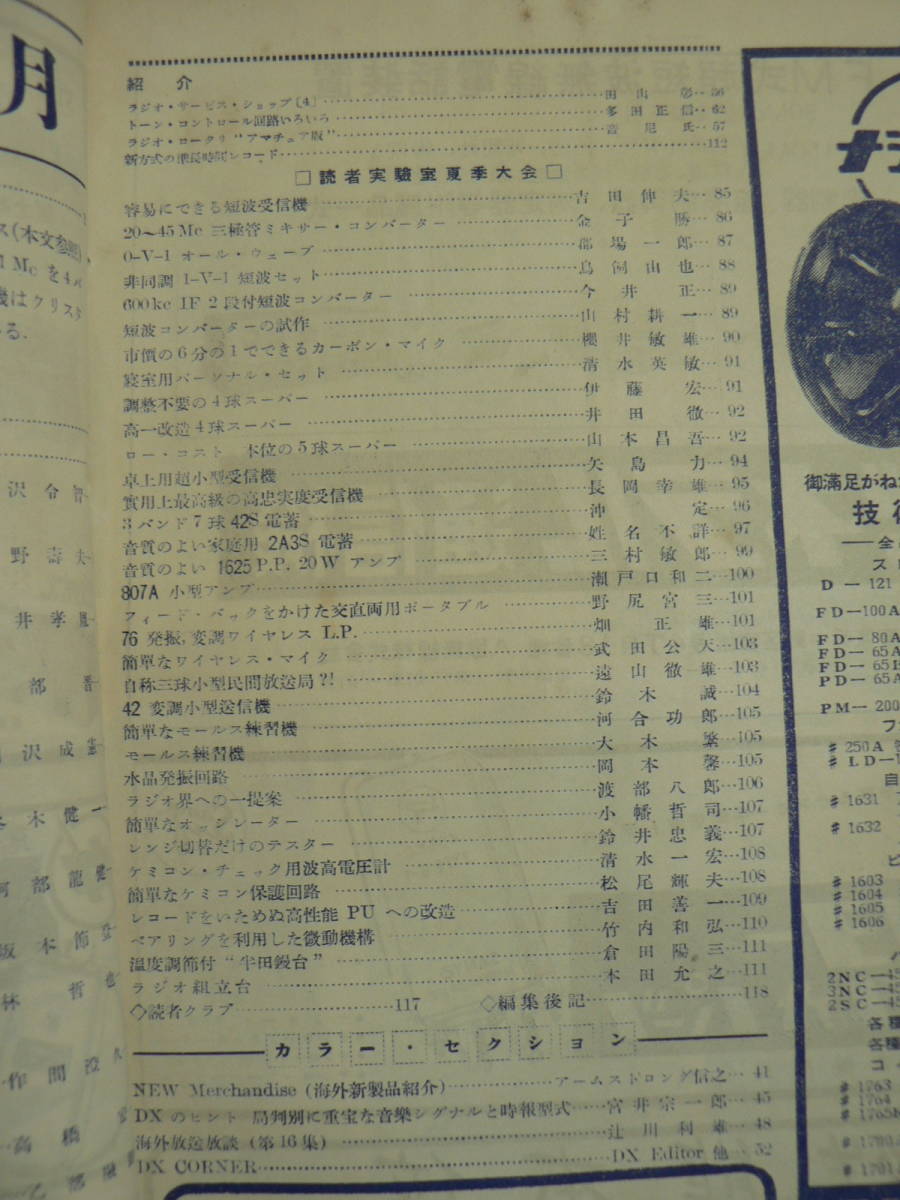 月
ス(本文参照)
1 Mc を4バ
機はクリスタ
る.
沢令智
野壽夫
井孝
部
沢成憲
木健一
阿部龍
坂本節
林哲也
作間澄久
高橋
乙部融
紹介
ラジオ・サービス・ショップ〔4〕……田山 彰…56
トーン・コントロール回路いろいろ……多田正信…62
ラジオ・ロータリ “アマチュア版”……音尼氏…57
新方式の準長時間レコード……112
□読者実驗室夏季大会□
容易にできる短波受信機……吉田伸夫…85
20~45 Mc 三極管ミキサー・コンバーター……金子 勝…86
0-V-1 オール・ウェーブ……郡場一郎…87
非同調 1-V-1 短波セット……鳥飼由也…88
600 kc IF 2段付短波コンバーター……今井 正…89
短波コンバーターの試作……山村耕一…89
市價の6分の1でできるカーボン・マイク……櫻井敏雄…90
寝室用パーソナル・セット……清水英敏…91
調整不要の4球スーパー……伊藤 宏…91
高一改造4球スーパー……井田 徹…92
ロー・コスト 本位の5球スーパー……山本昌吾…92
卓上用超小型受信機……矢島 力…94
實用上最高級の高忠実度受信機……長岡幸雄…95
3バンド7球 42S 電蓄……沖 定…96
音質のよい家庭用 2A3S 電蓄……姓名不詳…97
音質のよい 1625 P.P. 20W アンプ……三村敏郎…99
807A 小型アンプ……瀬戸口和二…100
フィード・バックをかけた交直両用ポータブル……野尻宮三…101
76 発振, 変調ワイヤレス L.P.……畑 正雄…101
簡単なワイヤレス・マイク……武田公天…103
自称三球小型民間放送局?!……遠山徹雄…103
42 変調小型送信機……鈴木 誠…104
簡単なモールス練習機……河合功郎…105
モールス練習機……大木 繁…105
水晶発振回路……岡本 馨…105
ラジオ界への一提案……渡部八郎…106
簡単なオッシレーター……小幡哲司…107
レンジ切替だけのテスター……鈴井忠義…107
ケミコン・チェック用波高電圧計……清水一宏…108
簡単なケミコン保護回路……松尾輝夫…108
レコードをいためぬ高性能 PU への改造……吉田善一…109
ベアリングを利用した微動機構……竹内和弘…110
温度調節付 “半田鏝台”……倉田陽三…111
ラジオ組立台……本田允之…111
◇読者クラブ……117 ◇編集後記……118
カラー・セクション
NEW Merchandise (海外新製品紹介)……アームストロング信之…41
DX のヒント 局判別に重宝な音樂シグナルと時報型式……宮井宗一郎…45
海外放送放談 (第16集)……辻川利雄…48
DX CORNER……DX Editor 他…52
御満足がね
技術
——全
D—121
FD—100A
FD—80A
FD—65A
FD—65
PD—65A
PM—200
♯250A
♯LD—
自
♯1631
♯1632
♯1603
♯1604
♯1605
♯1606
2NC—45
3NC—45
2SC—45
各種
各種
コイ
♯1763
♯1764
♯1765
♯1701